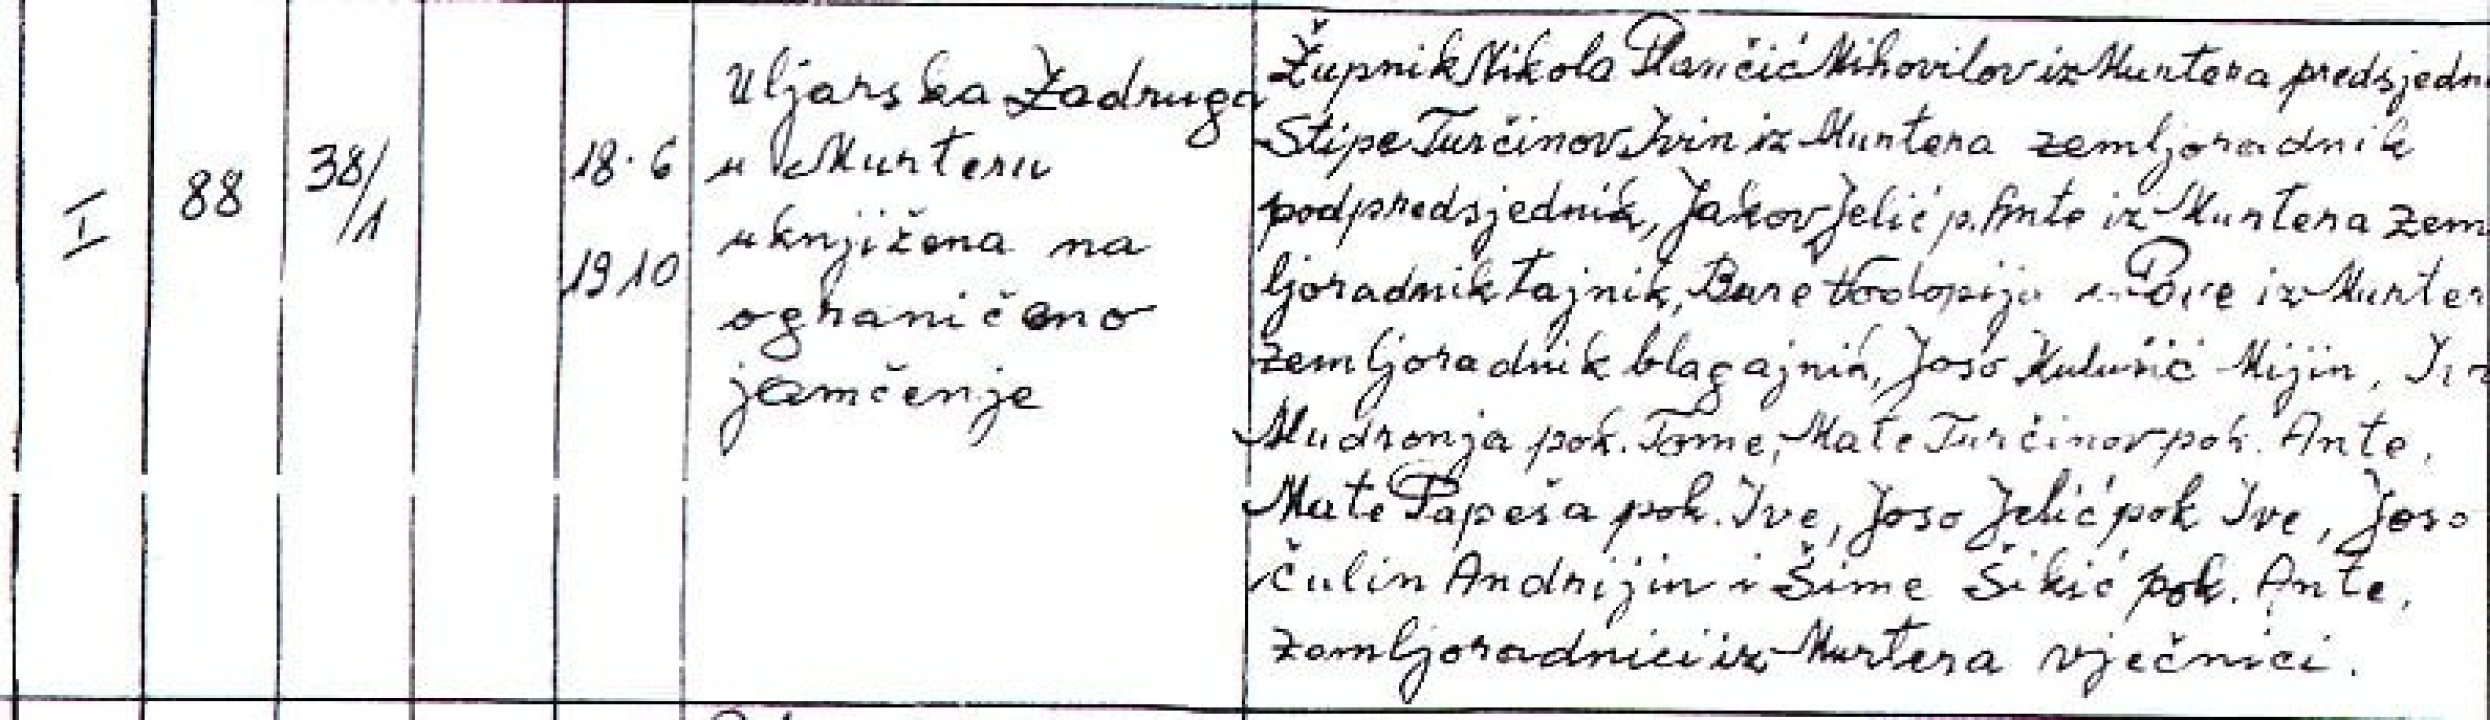 I
88
38/1
18.6
1910
Uljarska Zadruga
u Murteru
uknjižena na
ograničeno
jamčenje
Župnik Nikola Plančić Mihovilov iz Murtera predsjedn
Stipe Turčinov Ivin iz Murtera zemljoradnik
podpredsjednik, Jakov Jelić p. Ante iz Murtera zem
ljoradnik tajnik, Bare Vodopija Pave iz Murter
zemljoradnik blagajnik, Joso Kulušić Mijin,
Mudronja pok. Tome, Mate Turčinov pok. Ante,
Mate Papeša pok. Ive, Joso Jelić pok Ive, Joso
Čulin Andrijin i Šime Šikić pok. Ante,
zemljoradnici iz Murtera vječnici.